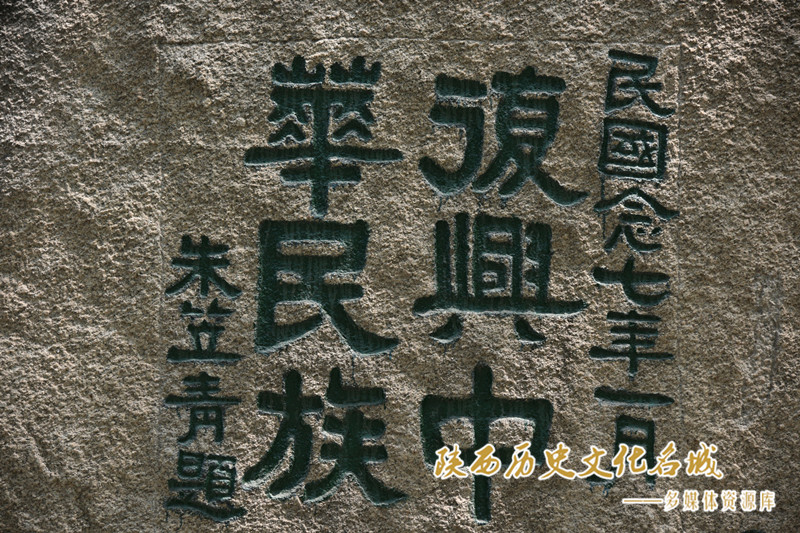 民國念七年一月
復興中
華民族
朱笠青題
陕西历史文化名城
——多媒体资源库